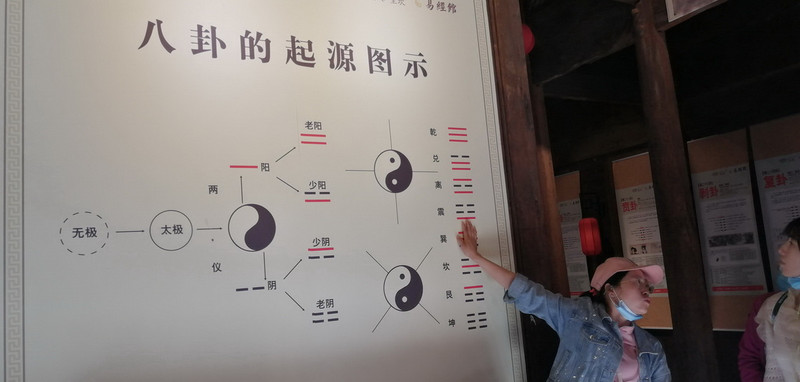 易經館
八卦的起源图示
无极
太极
两
仪
阳
阴
老阳
少阳
少阴
老阴
乾
兑
离
震
巽
坎
艮
坤